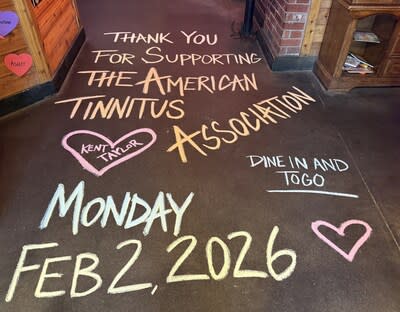 THANK YOU
FOR SUPPORTING
THE AMERICAN
TINNITUS
ASSOCIATION
KENT
TAYLOR
DINE IN AND
TOGO
MONDAY
FEB 2, 2026